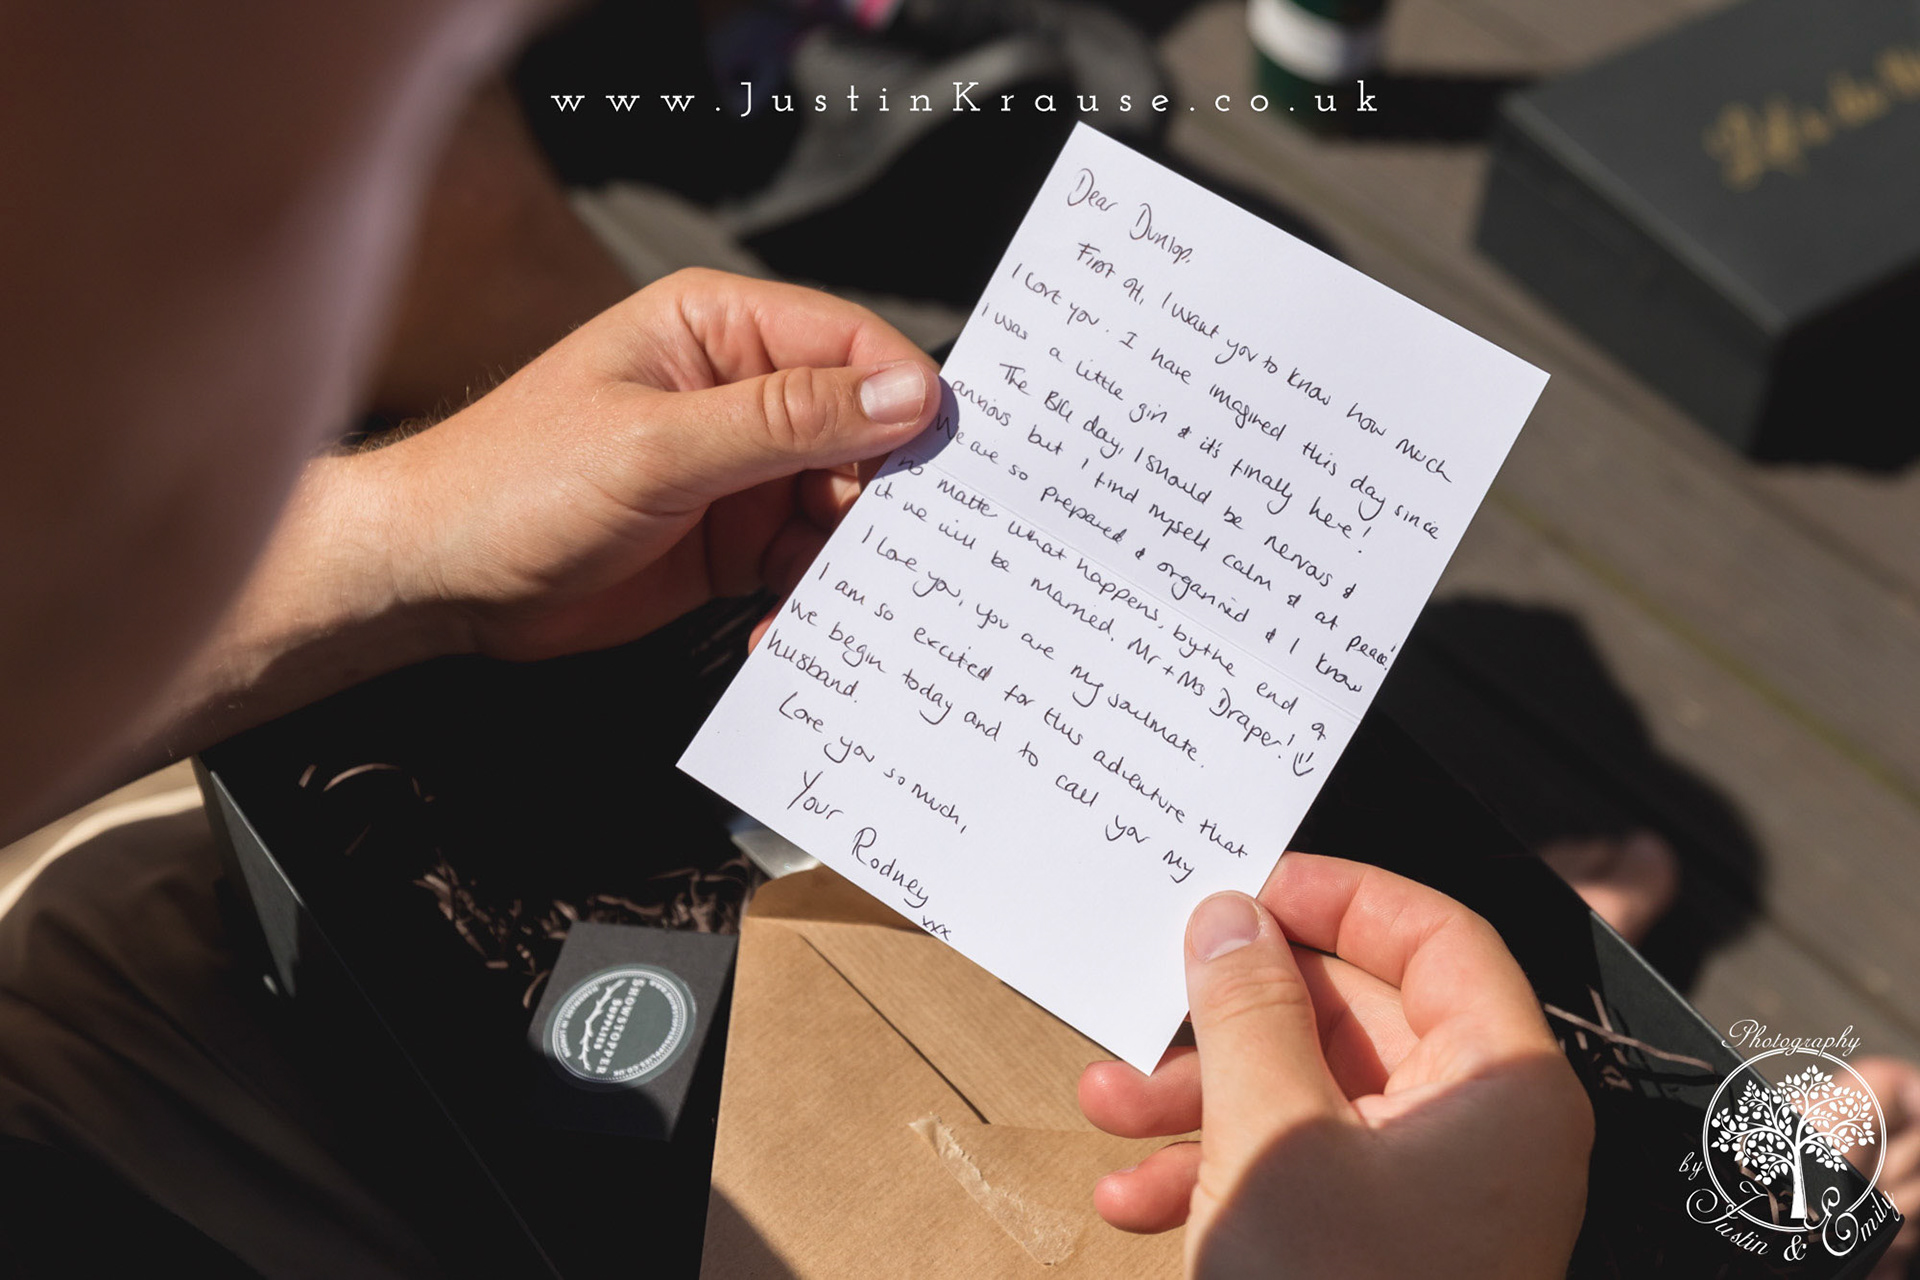 www.JustinKrause.co.uk
Dear Dunlop,
First off, I want you to know how much
I love you. I have imagined this day since
I was a little girl & it's finally here!
The BIG day, I should be nervous &
anxious but I find myself calm & at peace!
We are so prepared & organised & I know
no matter what happens, by the end of
it we will be married. Mr + Ms Draper!
I love you, you are my soulmate.
I am so excited for this adventure that
we begin today and to call you my
husband.
Love you so much,
Your Rodney
xxx
SHOWSTOPPER
SUPPLIES
Photography
by Justin & Emily